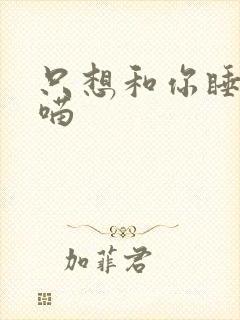 只想和你睡
喵
加菲君